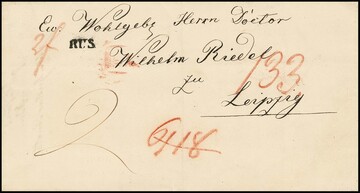 Ew. Wohlgeb. Herrn Doctor
RUS.
Wilhelm Riedel
zu
Leipzig
133
2
6/18